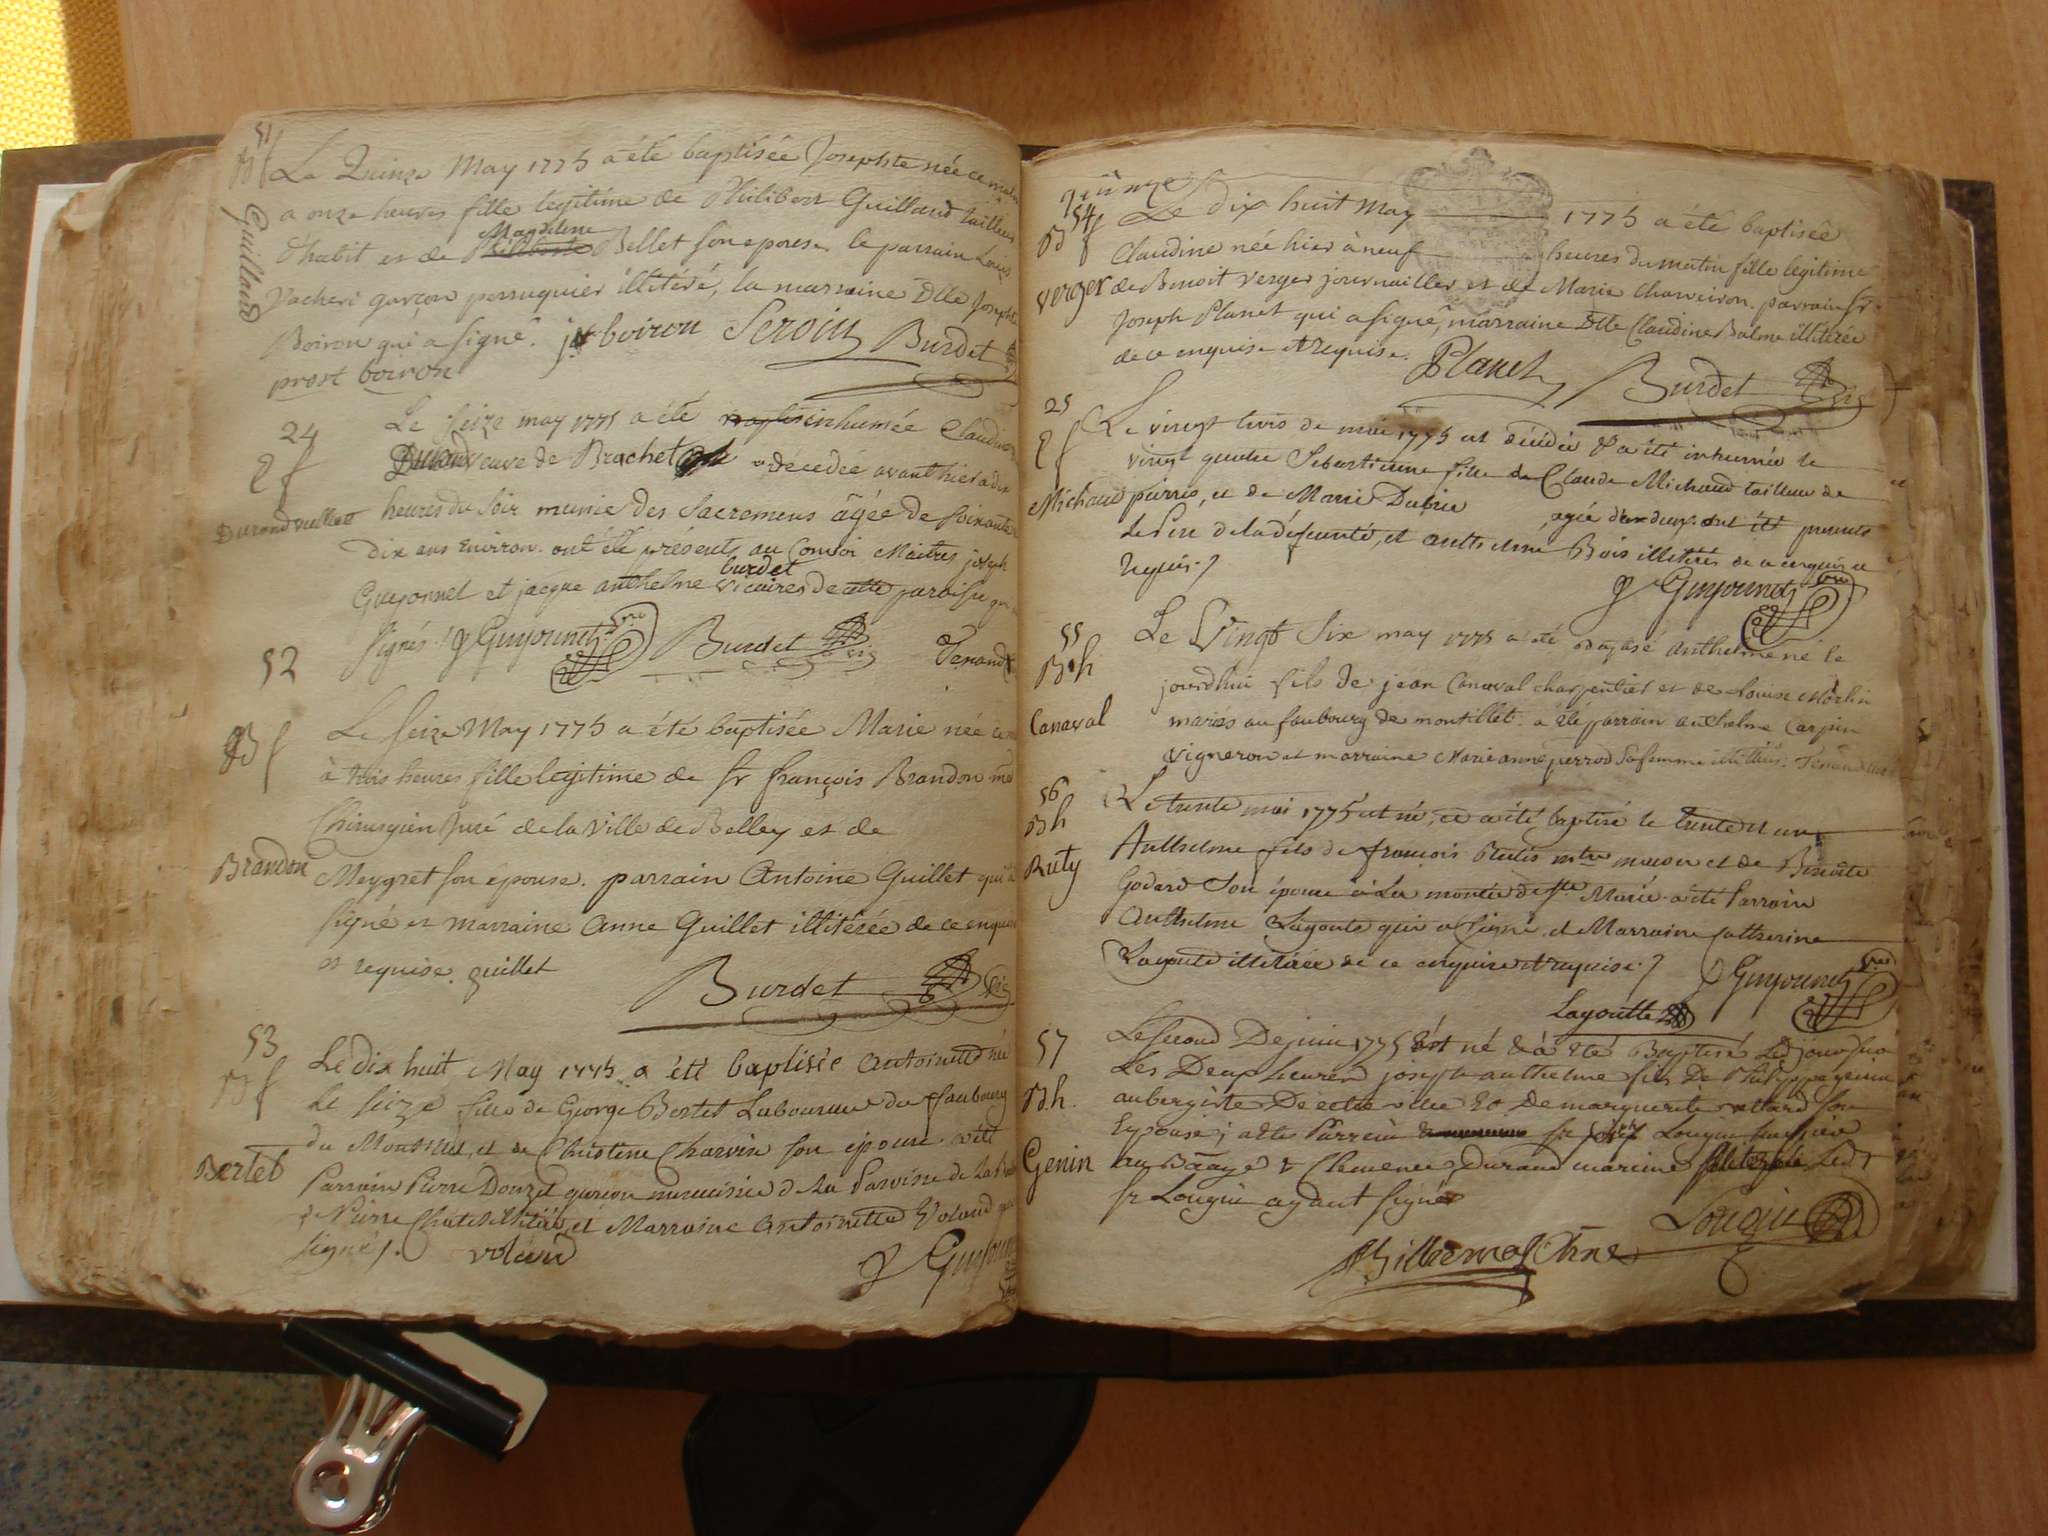 51
Bf
Guilland
Le Quinze May 1775 a été baptisée Josephte née ce matin
a onze heures fille legitime de Philibert Guilland tailleur
d'habit et de Magdelene Bellet son epouse, le parrain Louis
Vacheri garçon perruquier illitéré, la marraine Dlle Josephte
Boiron qui a signé. boiron Seroin Burdet
prost boiron
24
Le seize may 1775 a été inhumée Claudine
Durand veuve de Brachet décedée avanthier a dix
Ef
Durand
heures du soir munie des Sacremens âgée de soixante
dix ans Environ. ont été présents au Convoi Maitres joseph
Guyonnet et jacque anthelme burdet vicaires de cette paroisse qui
signés. J Guyonnet vre Burdet Tenand
52
Bf
Le seize May 1775 a été baptisée Marie née ce
à trois heures fille legitime de Sr françois Brandon md
Chirurgien Juré de la Ville de Belley et de
Brandon
Meygret son epouse. parrain Antoine Guillet qui a
signé et marraine Anne Guillet illitérée de ce enquise
et requise. guillet
Burdet
53
Bf
Le dix huit May 1775 a été baptisée Antoinette née
le seize fille de George Bertet Laboureur du faubourg
du et de Christine Charvin son epouse. a été
Bertet
Parrain Pierre Douzet garçon de la Paroisse de
de Pierre Chatel illitéré, et Marraine Antoinette Voland qui
signé. voland
J Guyonnet
quinze
54
Bf
Le dix huit May 1775 a été baptisée
Claudine née hier à neuf heures du matin fille legitime
verger
de Benoit Verger journaillier et de Marie Charveiron. parrain Sr
Joseph Planet qui a signé, marraine Dlle Claudine Balme illitérée
de ce enquise et requise. Planet Burdet
25
Ef
Le vingt trois de mai 1775 est décédée & a été inhumée le
vingt quatre Sebastienne fille de Claude Michaud tailleur de
Michaud
pierres, et de Marie Dubie agée d'un deux. ont été presents
Le Pere de la défunte, et anthelme Bois illitérés de ce enquis et
requis.
J Guyonnet vre
55
Bh
Le Vingt Six may 1775 a été anthelme né le
jourdhui fils de jean Canaval charpentier et de Louise Morlin
Canaval
mariés au faubourg de montillet. a été parrain anthelme Carpin
vigneron et marraine Marieanne perrod Sa femme illitérés. Tenand
56
Bh
Le trente mai 1775 est né, et a été baptisé le trente et un
Anthelme fils de françois Rutis mtre maçon et de Benoite
Ruty
Godard Son épouse à La montée de Ste Marie. a été Parrain
Anthelme Lagoute qui a Signé, et Marraine Catherine
Lagoute illitérée de ce enquise et requise. J Guyonnet vre
Lagoutte
57
Bh.
Genin
Le second De juin 1775 est né & a été Baptisé Led jour sur
Les Deux heures joseph anthelme fils De Philippe genin
aubergiste De cette ville Et De marguerite allard son
Epouse; a été Parrein Sr joseph Lougin
au & Clemence Durand mareine Led
Sr Lougin ayant signé
Lougin
Billiemaz